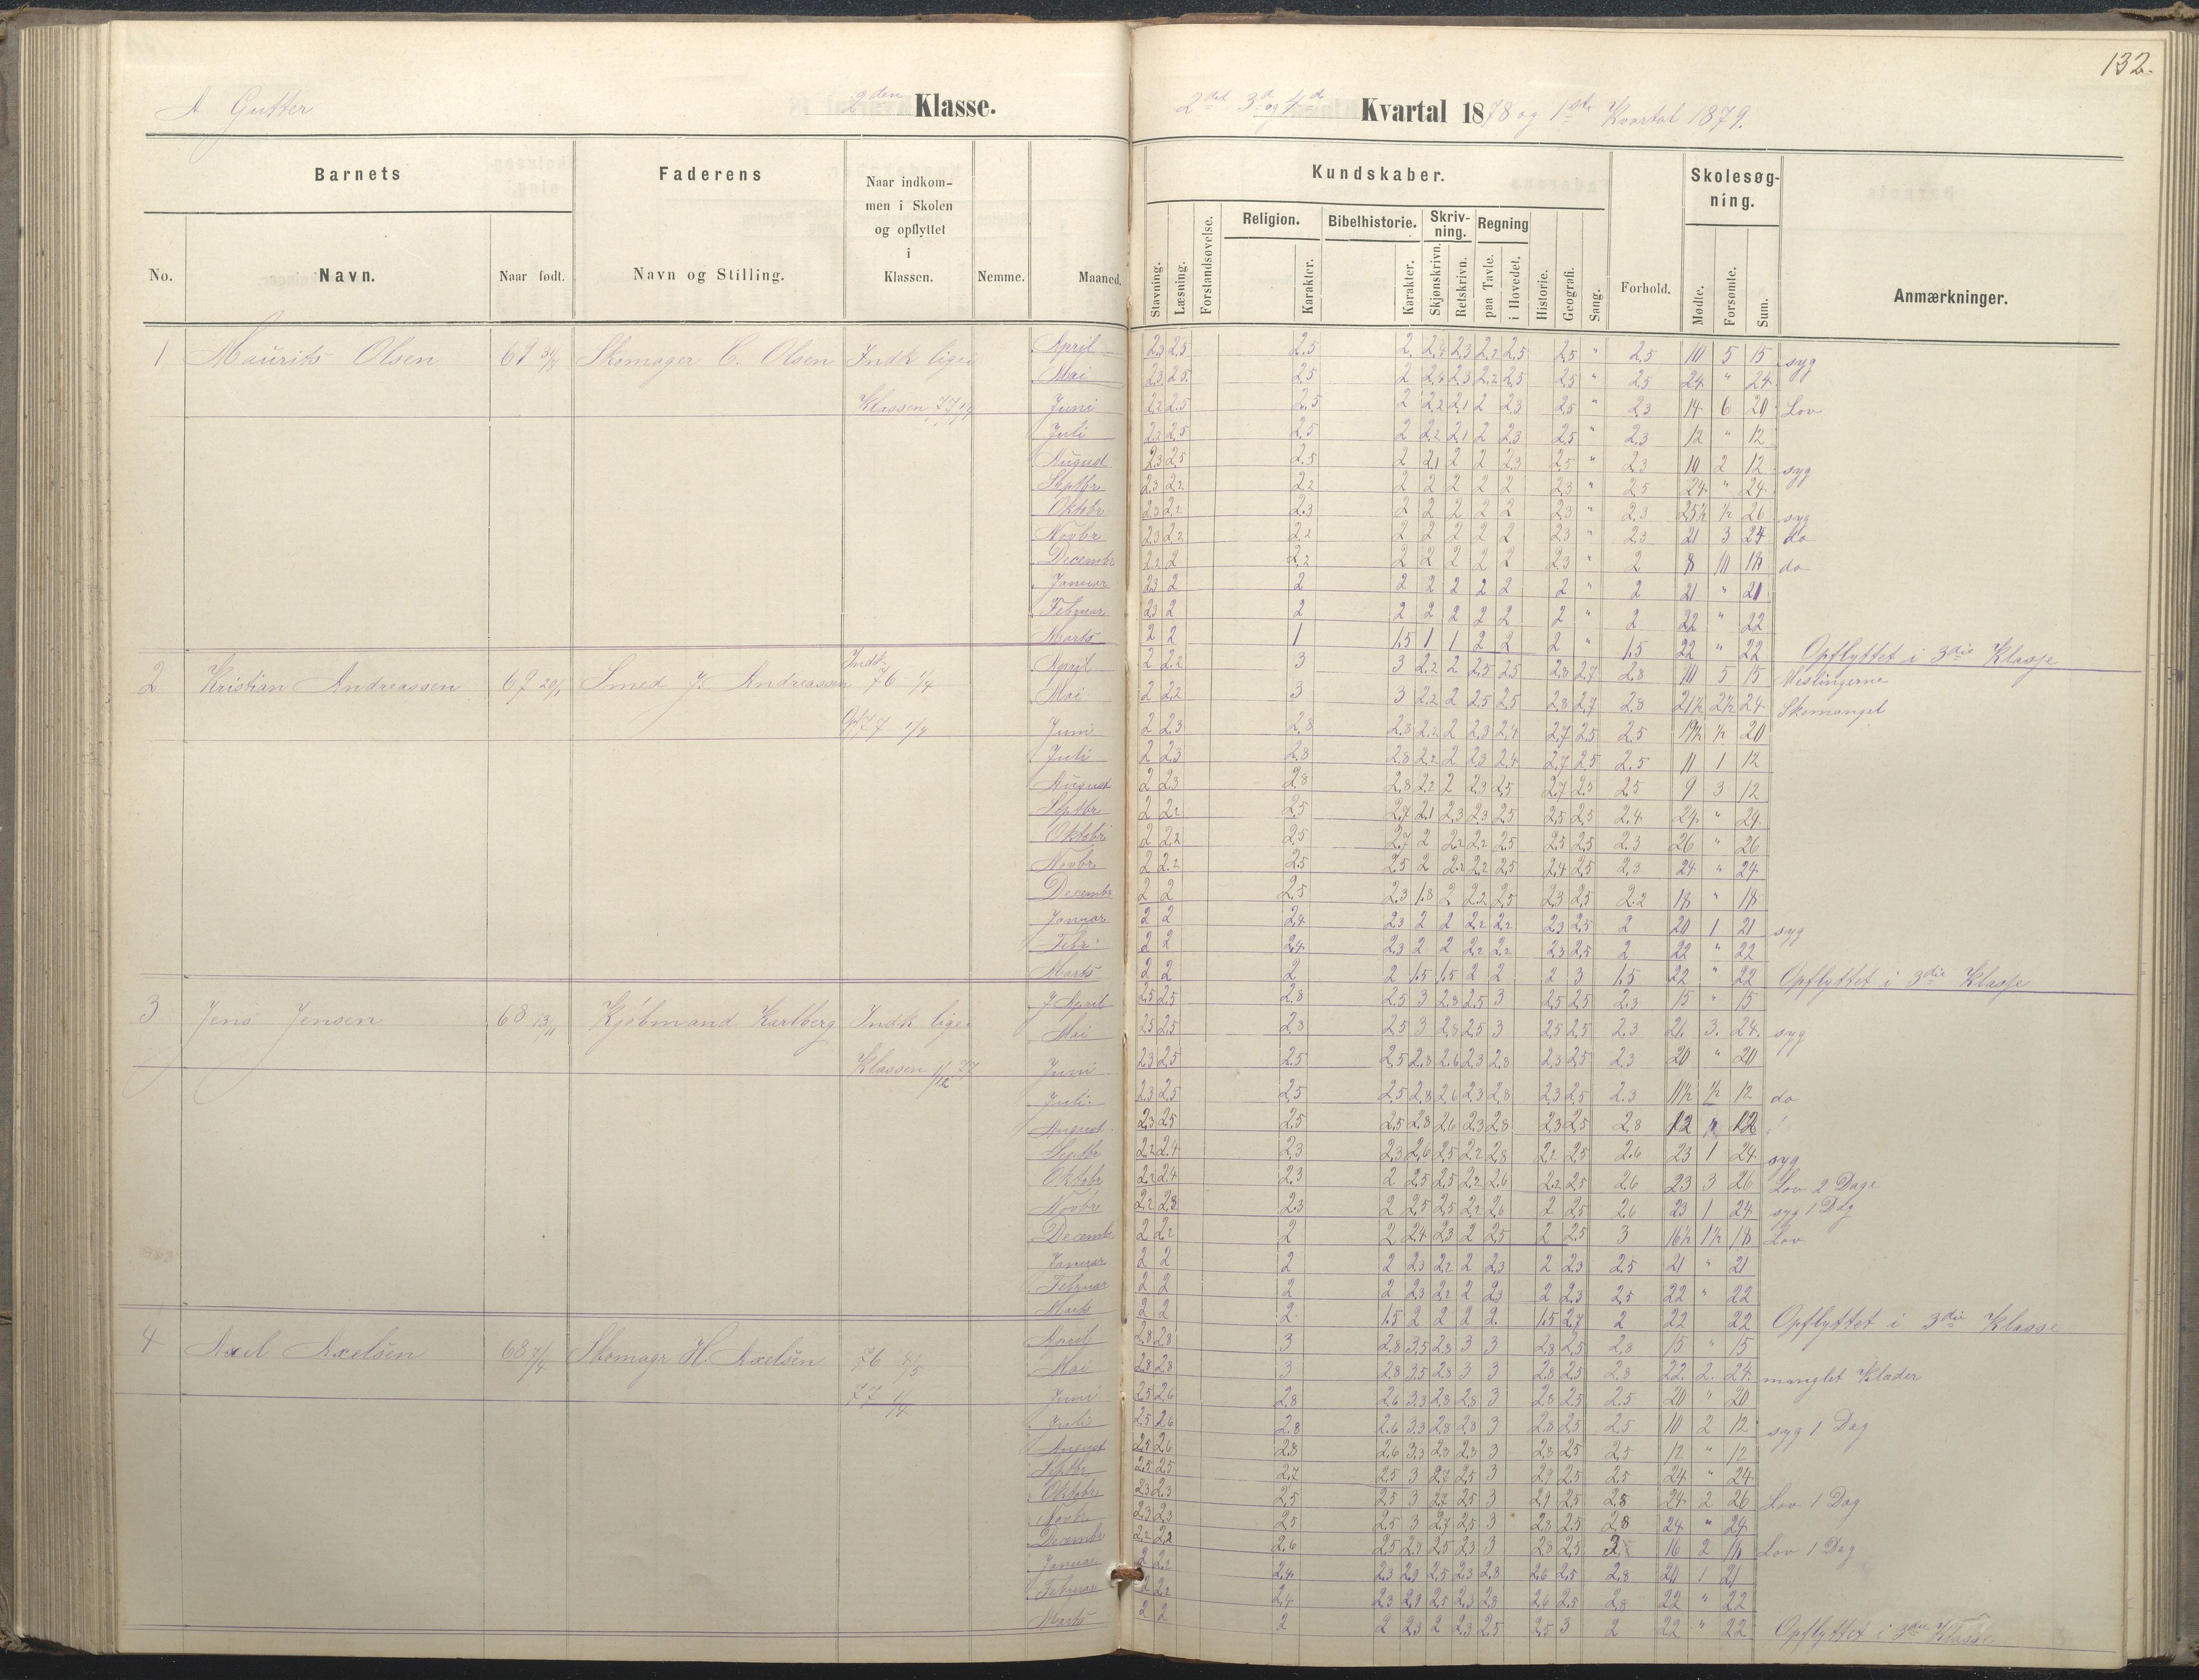 132.
A Gutter 2den Klasse. 2det 3d og 4de Kvartal 1878 og 1ste Kvartal 1879.
Barnets Faderens Naar indkommen i Skolen og opflyttet i Klassen. Kundskaber. Skolesøgning.
No. Navn. Naar født. Navn og Stilling. Nemme. Maaned. Stavning. Læsning. Forstandsøvelse. Religion. Karakter. Bibelhistorie. Karakter. Skrivning. Skjønskrivn. Retskrivn. Regning paa Tavle. i Hovedet. Historie. Geografi. Sang. Forhold. Mødte. Forsømte. Sum. Anmærkninger.
1 Maurits Olsen 69 Skomager C. Olsen Indk ligei April 2.3 2.5 2.5 2 2.4 2.3 2.2 2.5 2.5 " 2.5 10 5 15 syg
Mai 2.3 2.5 2.5 2 2.4 2.3 2.2 2.5 2.5 " 2.5 24 " 24
Klassen 77 1/4 Juni 2.2 2.5 2.5 2 2.2 2.1 2 2.3 2.5 " 2.3 14 6 20 Lov
Juli 2.2 2.5 2.5 2 2.2 2.1 2 2.3 2.5 " 2.3 12 " 12
August 2.3 2.5 2.5 2 2.1 2 2 2.3 2.5 " 2.3 10 2 12 syg
Septbr 2.3 2.2 2.2 2 2 2 2 2 2.3 " 2.5 24 " 24
Oktobr 2.3 2.2 2.3 2 2 2 2 2 2.3 " 2.3 25½ ½ 26 syg
Novbr 2.3 2.2 2.2 2 2 2 2 2 2.3 " 2.3 21 3 24 do
Decembr 2.2 2 2.2 2 2 2 2 2 2.3 " 2 8 10 18 do
Januar 2.3 2 2 2 2 2 2 2 2 " 2 21 " 21
Februar 2.3 2 2 2 2 2 2 2 2 " 2 22 " 22
Marts 2 2 1 1.5 1 1 2 2 2 " 1.5 22 " 22 Opflyttet i 3die Klasse
2 Kristian Andreassen 69 20/1 Smed J. Andreassen Indk 76 1/4 April 2 2.2 3 3 2.2 2 2.5 2.5 2.8 2.7 2.8 10 5 15 Meslingerne
Mai 2 2.2 3 3 2.2 2 2.5 2.5 2.8 2.7 2.8 21½ 2½ 24 Skomangel
Opf 77 1/4 Juni 2 2.3 2.8 2.8 2.2 2 2.3 2.4 2.7 2.5 2.5 19½ ½ 20
Juli 2 2.3 2.8 2.8 2.2 2 2.3 2.4 2.7 2.5 2.5 11 1 12
August 2 2.3 2.8 2.8 2.2 2 2.3 2.5 2.7 2.3 2.5 9 3 12
Septbr 2 2.2 2.5 2.7 2.1 2.3 2.3 2.5 2.5 2.5 2.4 24 " 24
Oktobr 2 2.2 2.5 2.7 2 2.2 2.2 2.5 2.5 2.5 2.3 26 " 26
Novbr 2 2.2 2.5 2.5 2 2.2 2.2 2.5 2.4 2.5 2.3 24 " 24
Decembr 2 2 2.5 2.3 1.8 2 2.2 2.5 2.3 2.5 2.2 18 " 18
Januar 2 2 2.4 2.3 2 2 2.2 2.2 2.3 2.5 2 20 1 21 syg
Febr 2 2 2.4 2.3 2 2 2.2 2.2 2.3 2.5 2 22 " 22
Marts 2 2 2 2 1.5 1.5 2 2 2 3 1.5 22 " 22 Opflyttet i 3die Klasse
3 Jens Jensen 68 13/11 Kjøbmand Karlberg Indk ligei April 2.5 2.5 2.8 2.5 3 2.8 2.5 3 2.5 2.5 2.3 15 " 15
Mai 2.5 2.5 2.8 2.5 3 2.8 2.5 3 2.5 2.5 2.3 21 3 24 syg
Klassen 1/12 77 Juni 2.3 2.5 2.5 2.5 2.8 2.6 2.3 2.8 2.3 2.5 2.3 20 " 20
Juli 2.3 2.5 2.5 2.5 2.8 2.6 2.3 2.8 2.3 2.5 2.3 11½ ½ 12 do
August 2.3 2.5 2.5 2.5 2.8 2.6 2.3 2.8 2.3 2.5 2.8 12 " 12
Septbr 2.2 2.4 2.3 2.3 2.6 2.5 2.2 2.8 2.2 2.5 2.6 23 1 24 syg
Oktobr 2.2 2.4 2.3 2 2.5 2.5 2.2 2.6 2.2 2.5 2.6 23 3 26 Lov 2 Dage
Novbr 2.2 2.3 2.3 2 2.5 2.5 2.2 2.6 2 2.5 2.6 23 1 24 syg 1 Dag
Decembr 2 2.2 2 2 2.4 2.3 2 2.5 2 2.5 3 16½ 1½ 18 Lov
Januar 2 2 2 2 2.3 2.2 2 2.3 2 2.3 2.5 21 " 21
Februar 2 2 2 2 2.3 2.2 2 2.3 2 2.3 2.5 22 " 22
Marts 2 2 2 1.5 2 2 2 2 1.5 2.7 2 22 22 Opflyttet i 3die Klasse
4 Axel Axelsen 68 7/4 Skomagr H. Axelsen 76 8/5 April 2.8 2.8 3 2.8 3.5 2.8 3 3 2.8 2.5 2.8 15 " 15
Mai 2.8 2.8 3 2.8 3.5 2.8 3 3 2.8 2.5 2.8 22 2 24 manglet Klæder
77 1/4 Juni 2.5 2.6 2.8 2.6 3.3 2.8 2.8 3 2.8 2.5 2.5 20 " 20
Juli 2.5 2.6 2.8 2.6 3.3 2.8 2.8 3 2.8 2.5 2.5 10 2 12 syg 1 Dag
August 2.5 2.6 2.8 2.6 3.3 2.8 2.8 3 2.8 2.5 2.5 12 " 12
Septbr 2.5 2.5 2.7 2.5 3 2.7 2.5 3 2.9 2.5 2.5 24 " 24
Oktobr 2.3 2.3 2.5 2.5 3 2.7 2.5 3 2.9 2.5 2.8 24 2 26 Lov 1 Dag
Novbr 2.3 2.3 2.5 2.5 3 2.7 2.5 3 2.8 2.5 2.8 24 " 24
Decembr 2.2 2.2 2.6 2.5 2.9 2.5 2.3 3 2.8 2.5 3 16 2 18 Lov 1 Dag
Januar 2 2.2 2.4 2.3 2.9 2.5 2.3 2.8 2.6 2.5 2.8 20 1 21
Februar 2 2.2 2.4 2.3 2.9 2.5 2.3 2.8 2.6 2.5 2.8 22 " 22
Marts 2 2 2 2 2.3 2 2.3 2.5 2.5 3 2 22 " 22 Opflyttet i 3die Klasse